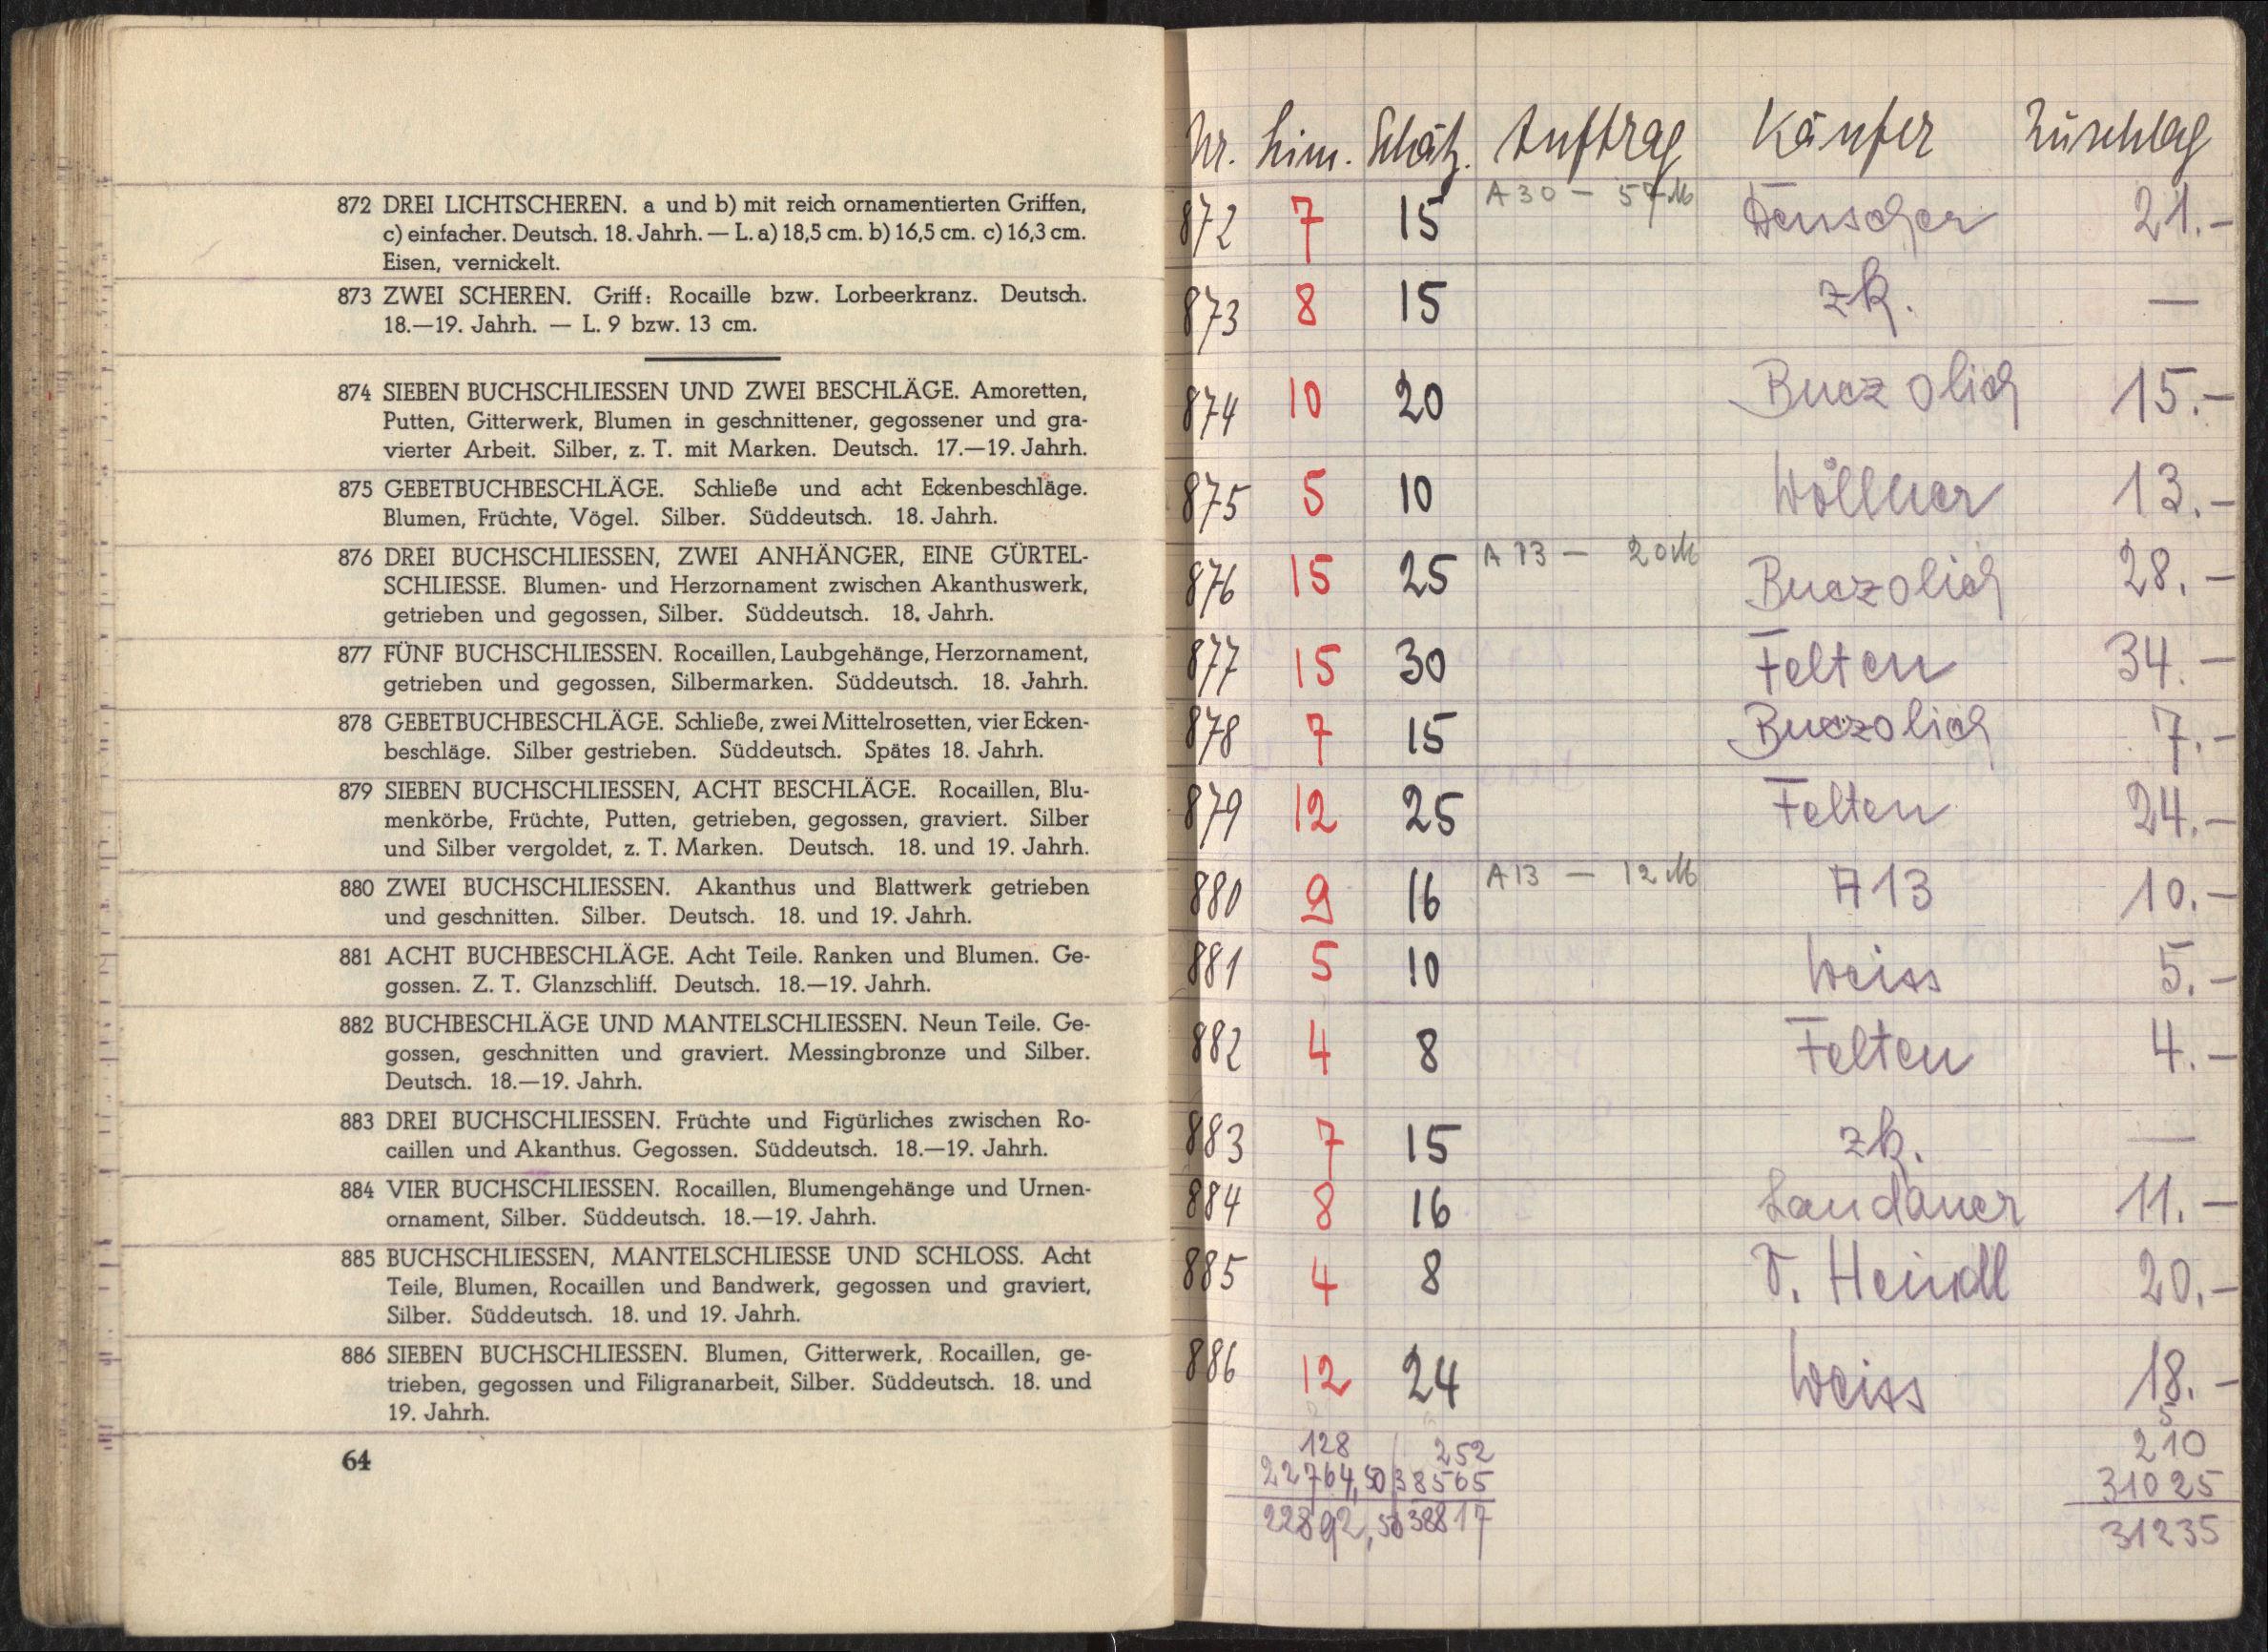 872 DREI LICHTSCHEREN. a und b) mit reich ornamentierten Griffen,
c) einfacher. Deutsch. 18. Jahrh. — L. a) 18,5 cm. b) 16,5 cm. c) 16,3 cm.
Eisen, vernickelt.
873 ZWEI SCHEREN. Griff: Rocaille bzw. Lorbeerkranz. Deutsch.
18.—19. Jahrh. — L. 9 bzw. 13 cm.
874 SIEBEN BUCHSCHLIESSEN UND ZWEI BESCHLÄGE. Amoretten,
Putten, Gitterwerk, Blumen in geschnittener, gegossener und gra-
vierter Arbeit. Silber, z. T. mit Marken. Deutsch. 17.—19. Jahrh.
875 GEBETBUCHBESCHLÄGE. Schließe und acht Eckenbeschläge.
Blumen, Früchte, Vögel. Silber. Süddeutsch. 18. Jahrh.
876 DREI BUCHSCHLIESSEN, ZWEI ANHÄNGER, EINE GÜRTEL-
SCHLIESSE. Blumen- und Herzornament zwischen Akanthuswerk,
getrieben und gegossen, Silber. Süddeutsch. 18. Jahrh.
877 FÜNF BUCHSCHLIESSEN. Rocaillen, Laubgehänge, Herzornament,
getrieben und gegossen, Silbermarken. Süddeutsch. 18. Jahrh.
878 GEBETBUCHBESCHLÄGE. Schließe, zwei Mittelrosetten, vier Ecken-
beschläge. Silber gestrieben. Süddeutsch. Spätes 18. Jahrh.
879 SIEBEN BUCHSCHLIESSEN, ACHT BESCHLÄGE. Rocaillen, Blu-
menkörbe, Früchte, Putten, getrieben, gegossen, graviert. Silber
und Silber vergoldet, z. T. Marken. Deutsch. 18. und 19. Jahrh.
880 ZWEI BUCHSCHLIESSEN. Akanthus und Blattwerk getrieben
und geschnitten. Silber. Deutsch. 18. und 19. Jahrh.
881 ACHT BUCHBESCHLÄGE. Acht Teile. Ranken und Blumen. Ge-
gossen. Z. T. Glanzschliff. Deutsch. 18.—19. Jahrh.
882 BUCHBESCHLÄGE UND MANTELSCHLIESSEN. Neun Teile. Ge-
gossen, geschnitten und graviert. Messingbronze und Silber.
Deutsch. 18.—19. Jahrh.
883 DREI BUCHSCHLIESSEN. Früchte und Figürliches zwischen Ro-
caillen und Akanthus. Gegossen. Süddeutsch. 18.—19. Jahrh.
884 VIER BUCHSCHLIESSEN. Rocaillen, Blumengehänge und Urnen-
ornament, Silber. Süddeutsch. 18.—19. Jahrh.
885 BUCHSCHLIESSEN, MANTELSCHLIESSE UND SCHLOSS. Acht
Teile, Blumen, Rocaillen und Bandwerk, gegossen und graviert,
Silber. Süddeutsch. 18. und 19. Jahrh.
886 SIEBEN BUCHSCHLIESSEN. Blumen, Gitterwerk, Rocaillen, ge-
trieben, gegossen und Filigranarbeit, Silber. Süddeutsch. 18. und
19. Jahrh.
64
Nr. Lim. Schätz. Auftrag Käufer Zuschlag
872 7 15 A 30 — 57 M 21.—
873 8 15 zk. —
874 10 20 Buczolich 15.—
875 5 10 Wöllner 13.—
876 15 25 A 13 — 20 M Buczolich 28.—
877 15 30 Felten 34.—
878 7 15 Buczolich 7.—
879 12 25 Felten 24.—
880 9 16 A 13 — 12 M A 13 10.—
881 5 10 Weiss 5.—
882 4 8 Felten 4.—
883 7 15 zk. —
884 8 16 Landauer 11.—
885 4 8 V. Heindl 20.—
886 12 24 Weiss 18.—
128 252 210
22764,50 38565 31025
22892,50 38817 31235